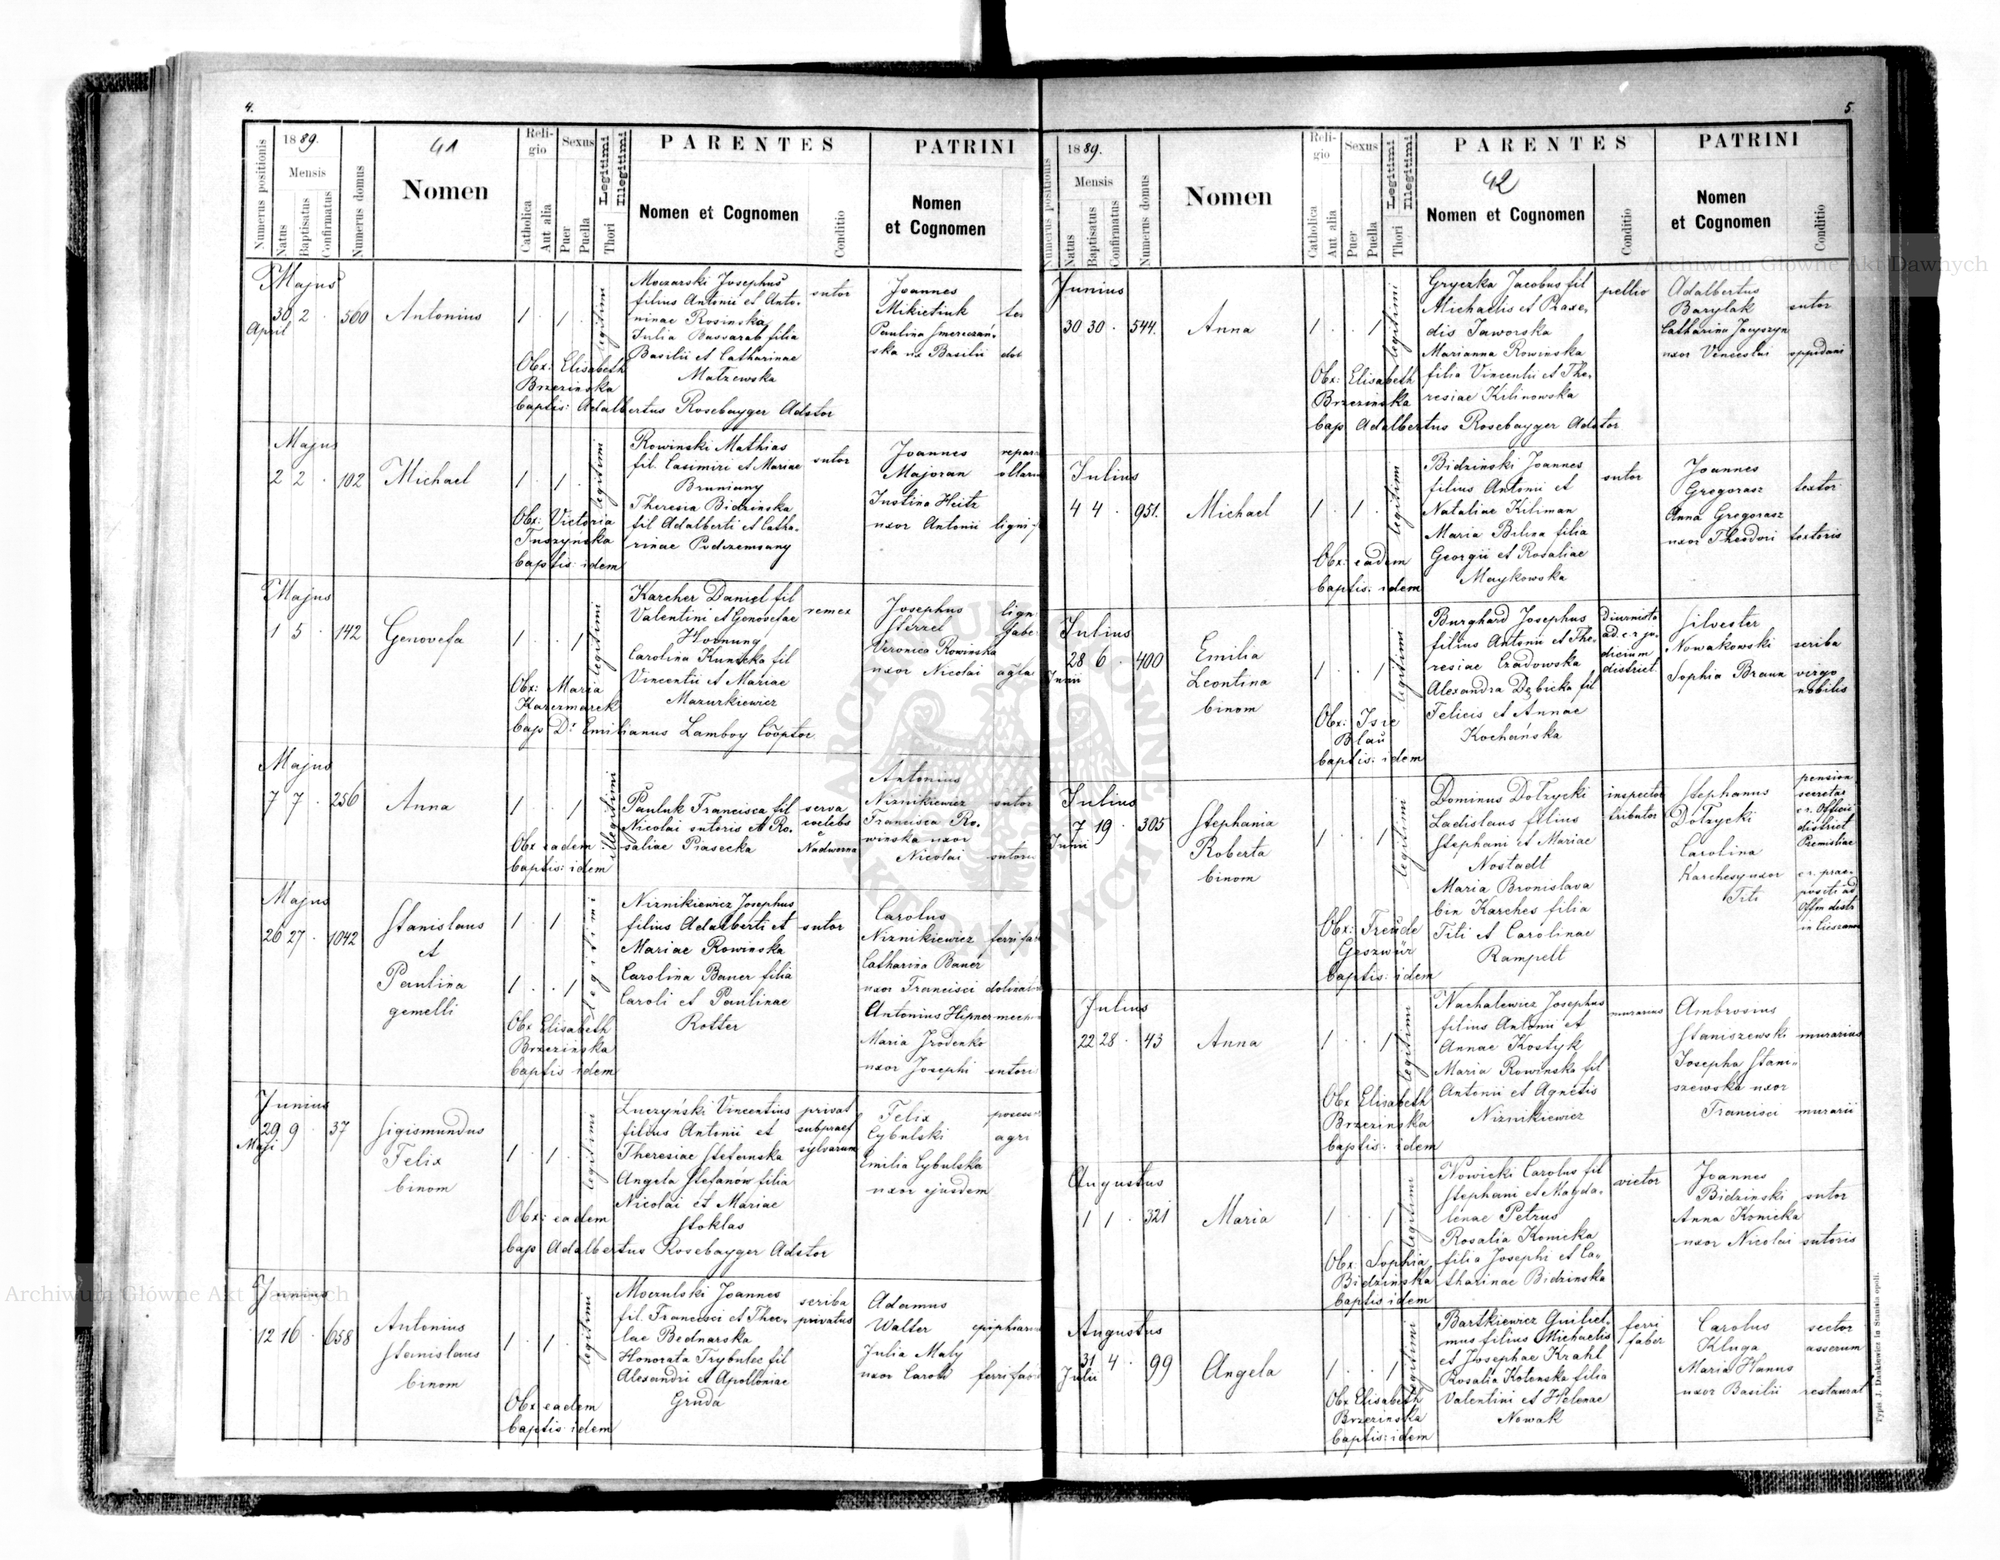 4.
Numerus positionis
1889.
Mensis
Natus
Baptisatus
Confirmatus
Numerus domus
41
Nomen
Religio
Catholica
Aut alia
Sexus
Puer
Puella
Thori
Legitimi
Illegitimi
PARENTES
Nomen et Cognomen
Conditio
PATRINI
Nomen
et Cognomen
Majus
30 2 . 500 Antonius 1 . 1 .
April
legitimi
Moczarski Josephus
filius Antonii et Anto-
ninae Rosinska
Julia Bassarab filia
Basilii et Catharinae
Matzewska
sutor
Joannes
Mikietiuk
Paulina Smereczań-
ska ux Basilii
Obx: Elisabeth
Brzezinska
baptis: Adalbertus Rosebayger Adstor
Majus
2 2 . 102 Michael 1 . 1 .
legitimi
Rowinski Mathias
fil. Casimiri et Mariae
Bruniany
Theresia Bidzinska
fil Adalberti et Catha-
rinae Podszemsany
sutor
Joannes
Majoran
Justina Heitz
uxor Antonii
Obx: Victoria
Tuszyńska
baptis: idem
Majus
1 5 . 142 Genovefa 1 . . 1
legitimi
Karcher Daniel fil
Valentini et Genovefae
Hornung
Carolina Kunicka fil
Vincentii et Mariae
Mazurkiewicz
remex
Josephus
Sterzel
Veronica Rowinska
uxor Nicolai
Obx: Maria
Karczmarek
bap Dr Emilianus Lamboy Cooptor
Majus
7 7 . 256 Anna 1 . . 1
illegitimi
Pauluk Francisca fil
Nicolai sutoris et Ro-
saliae Piasecka
serva
coelebs
e
Nadworna
Antonius
Niznikiewicz sutor
Francisca Ro-
winska uxor
Nicolai sutoris
Obx eadem
baptis: idem
Majus
26 27 . 1042 Stanislaus
et
Paulina
gemelli
1 . 1 .
1 . . 1
legitimi
Niznikiewicz Josephus
filius Adalberti et
Mariae Rowinska
Carolina Bauer filia
Caroli et Paulinae
Rotter
sutor
Carolus
Niznikiewicz
Catharina Bauer
uxor Francisci
Antonius Hipner
Maria Jrodenko
uxor Josephi
Obx Elisabeth
Brzezinska
baptis idem
Junius
29 9 . 37 Sigismundus
Maji
Felix
binom
1 . 1 .
legitimi
Łuczyński Vincentius
filius Antonii et
Theresiae Stefanska
Angela Stefanów filia
Nicolai et Mariae
Stoklas
privat
subpraef
sylvarum
Felix
Cybulski
Emilia Cybulska
uxor ejusdem
agri
Obx: eadem
bap Adalbertus Rosebayger Adstor
Junius
12 16 . 658 Antonius
Stanislaus
binom
1 . 1 .
legitimi
Moczulski Joannes
fil. Francisci et Thec-
lae Bednarska
Honorata Trybulec fil
Alexandri et Apolloniae
Gruda
scriba
privatus
Adamus
Walter
Julia Maly
uxor Caroli
Obx eadem
baptis: idem
5.
Numerus positionis
1889.
Mensis
Natus
Baptisatus
Confirmatus
Numerus domus
Nomen
Religio
Catholica
Aut alia
Sexus
Puer
Puella
Thori
Legitimi
Illegitimi
PARENTES
42
Nomen et Cognomen
Conditio
PATRINI
Nomen
et Cognomen
Conditio
Junius
30 30 . 544. Anna 1 . . 1
legitimi
Gryczka Jacobus fil
Michaelis et Praxe-
dis Jaworska
Marianna Rowinska
filia Vincentii et The-
resiae Kilinowska
pellio
Adalbertus
Barylak sutor
Catharina Jacyszyn
uxor Venceslai oppidani
Obx: Elisabeth
Brzezinska
bap Adalbertus Rosebayger Adstor
Julius
4 4 . 951. Michael 1 . 1 .
legitimi
Bidzinski Joannes
filius Antonii et
Nataliae Kiliman
Maria Bilina filia
Georgii et Rosaliae
Maykowska
sutor
Joannes
Gregorasz textor
Anna Gregorasz
uxor Theodori textoris
Obx: eadem
baptis: idem
Julius
28 6 . 400 Emilia
Junii
Leontina
binom
1 . . 1
legitimi
Burghard Josephus
filius Antonii et The-
resiae Czadowska
Alexandra Dębicka fil
Felicis et Annae
Kochańska
Diurnista
ad. c r ju-
dicium
district.
Silvester
Nowakowski scriba
Sophia Braun virgo
nobilis
Obx: Isie
Blau
baptis: idem
Julius
7 19 . 305 Stephania
Junii
Roberta
binom
1 . . 1
legitimi
Dominus Dołzycki
Ladislaus filius
Stephani et Mariae
Nostadt
Maria Bronislava
bin Karches filia
Titi et Carolinae
Rampelt
inspector
tributor
Stephanus
Dołzycki
Carolina
Karchesy uxor
Titi
pension
secretar
c r. Officii
district
Premisliae
c r. prae-
positi ad
Offm distr
in Cieszanow
Obx: Freude
Groszwür
baptis: idem
Julius
22 28 . 43 Anna 1 . . 1
legitimi
Nachalewicz Josephus
filius Antonii et
Annae Kostyk
Maria Rowinska fil
Antonii et Agnetis
Niznikiewicz
murarius
Ambrosius
Staniszewski murarius
Josepha Stani-
szewska uxor
Francisci murarii
Obx Elisabeth
Brzezinska
baptis: idem
Augustus
1 1 . 321 Maria 1 . . 1
legitimi
Nowicki Carolus fil
Stephani et Magda-
lenae Petrus
Rosalia Konicka
filia Josephi et Ca-
tharinae Bidzinska
victor
Joannes
Bidzinski sutor
Anna Konicka
uxor Nicolai sutoris
Obx: Sophia
Bidzinska
baptis idem
Augustus
31 4 . 99 Angela 1 . . 1
Julii
legitimi
Bartkiewicz Guiliel-
mus filius Michaelis
et Josephae Krahl
Rosalia Kotenska filia
Valentini et Helenae
Nowak
ferri
faber
Carolus sector
Kluga asserum
Maria Hanus
uxor Basilii restaurat
Obx Elisabeth
Brzezinska
baptis: idem
Archiwum Główne Akt Dawnych
Archiwum Główne Akt Dawnych
ARCHIWUM GŁÓWNE AKT DAWNYCH